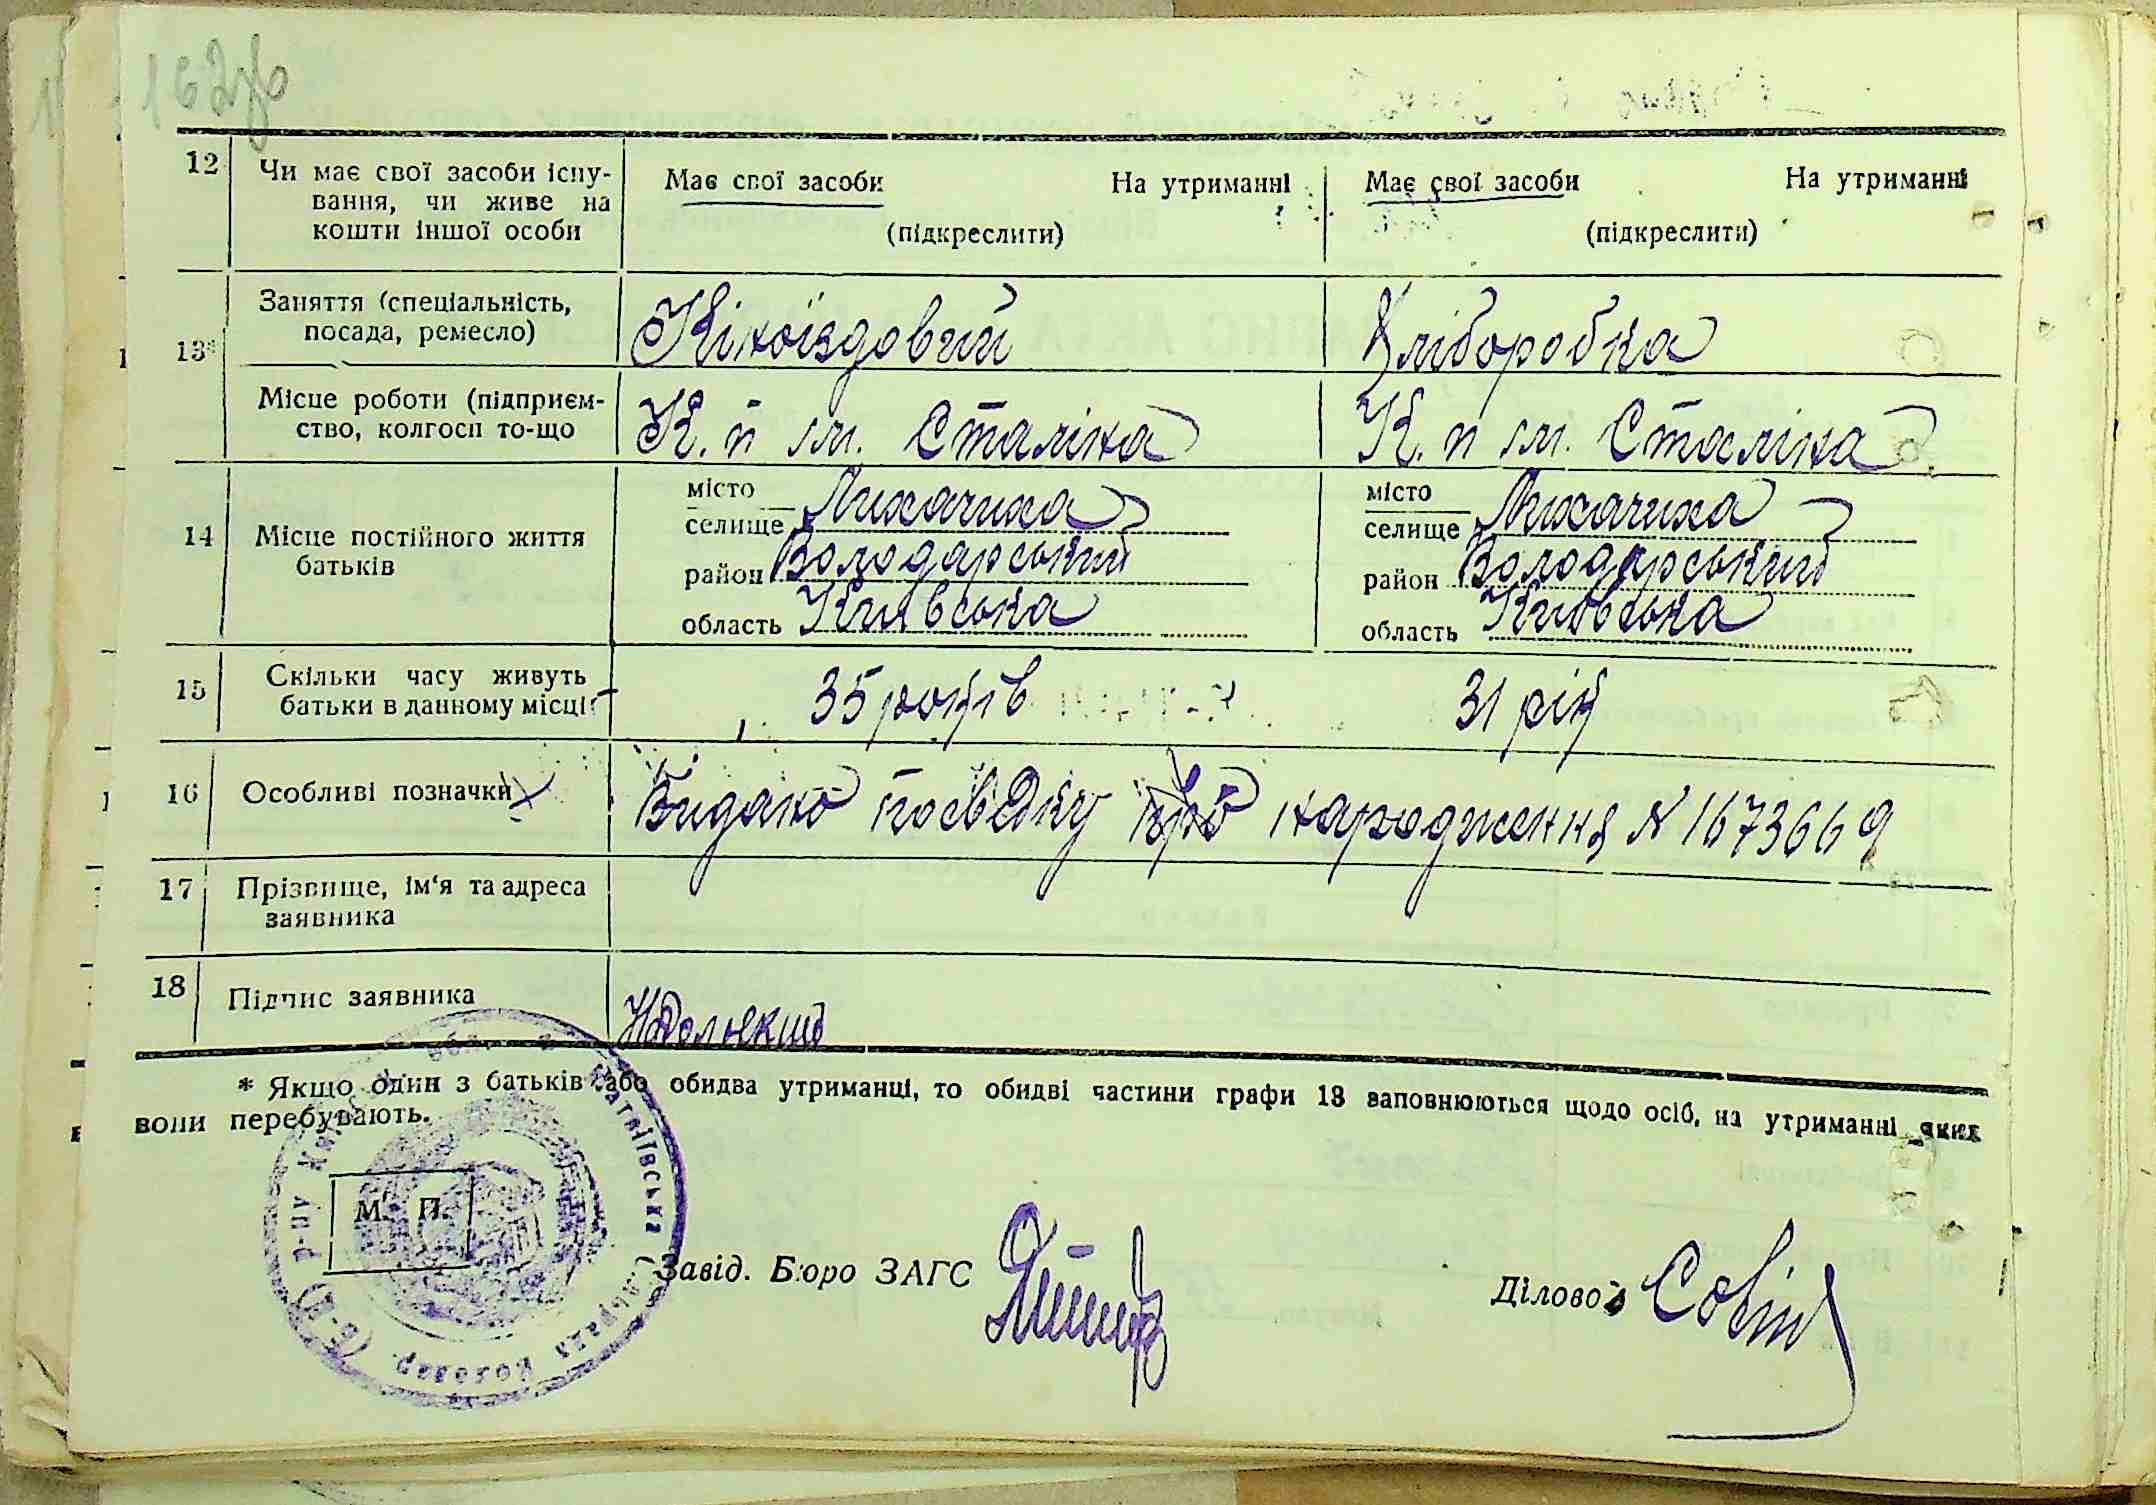 162зв
12 Чи має свої засоби існу- Має свої засоби На утриманні Має свої засоби На утриманні
вання, чи живе на
кошти іншої особи (підкреслити) (підкреслити)
13* Заняття (спеціальність, Кіноїздовий Хліборобка
посада, ремесло)
Місце роботи (підприєм- К. п ім. Сталіна К. п ім. Сталіна
ство, колгосп то-що
14 Місце постійного життя місто Лихачиха місто Лихачиха
батьків селище селище
район Володарський район Володарський
область Київська область Київська
15 Скільки часу живуть 35 років 31 рік
батьки в данному місці
16 Особливі позначки Видано посвідку про народження N 1673669
17 Прізвище, ім'я та адреса
заявника
18 Підпис заявника
* Якщо один з батьків або обидва утриманці, то обидві частини графи 13 заповнюються щодо осіб, на утриманні яких
вони перебувають.
М. П.
Завід. Бюро ЗАГС Діловод